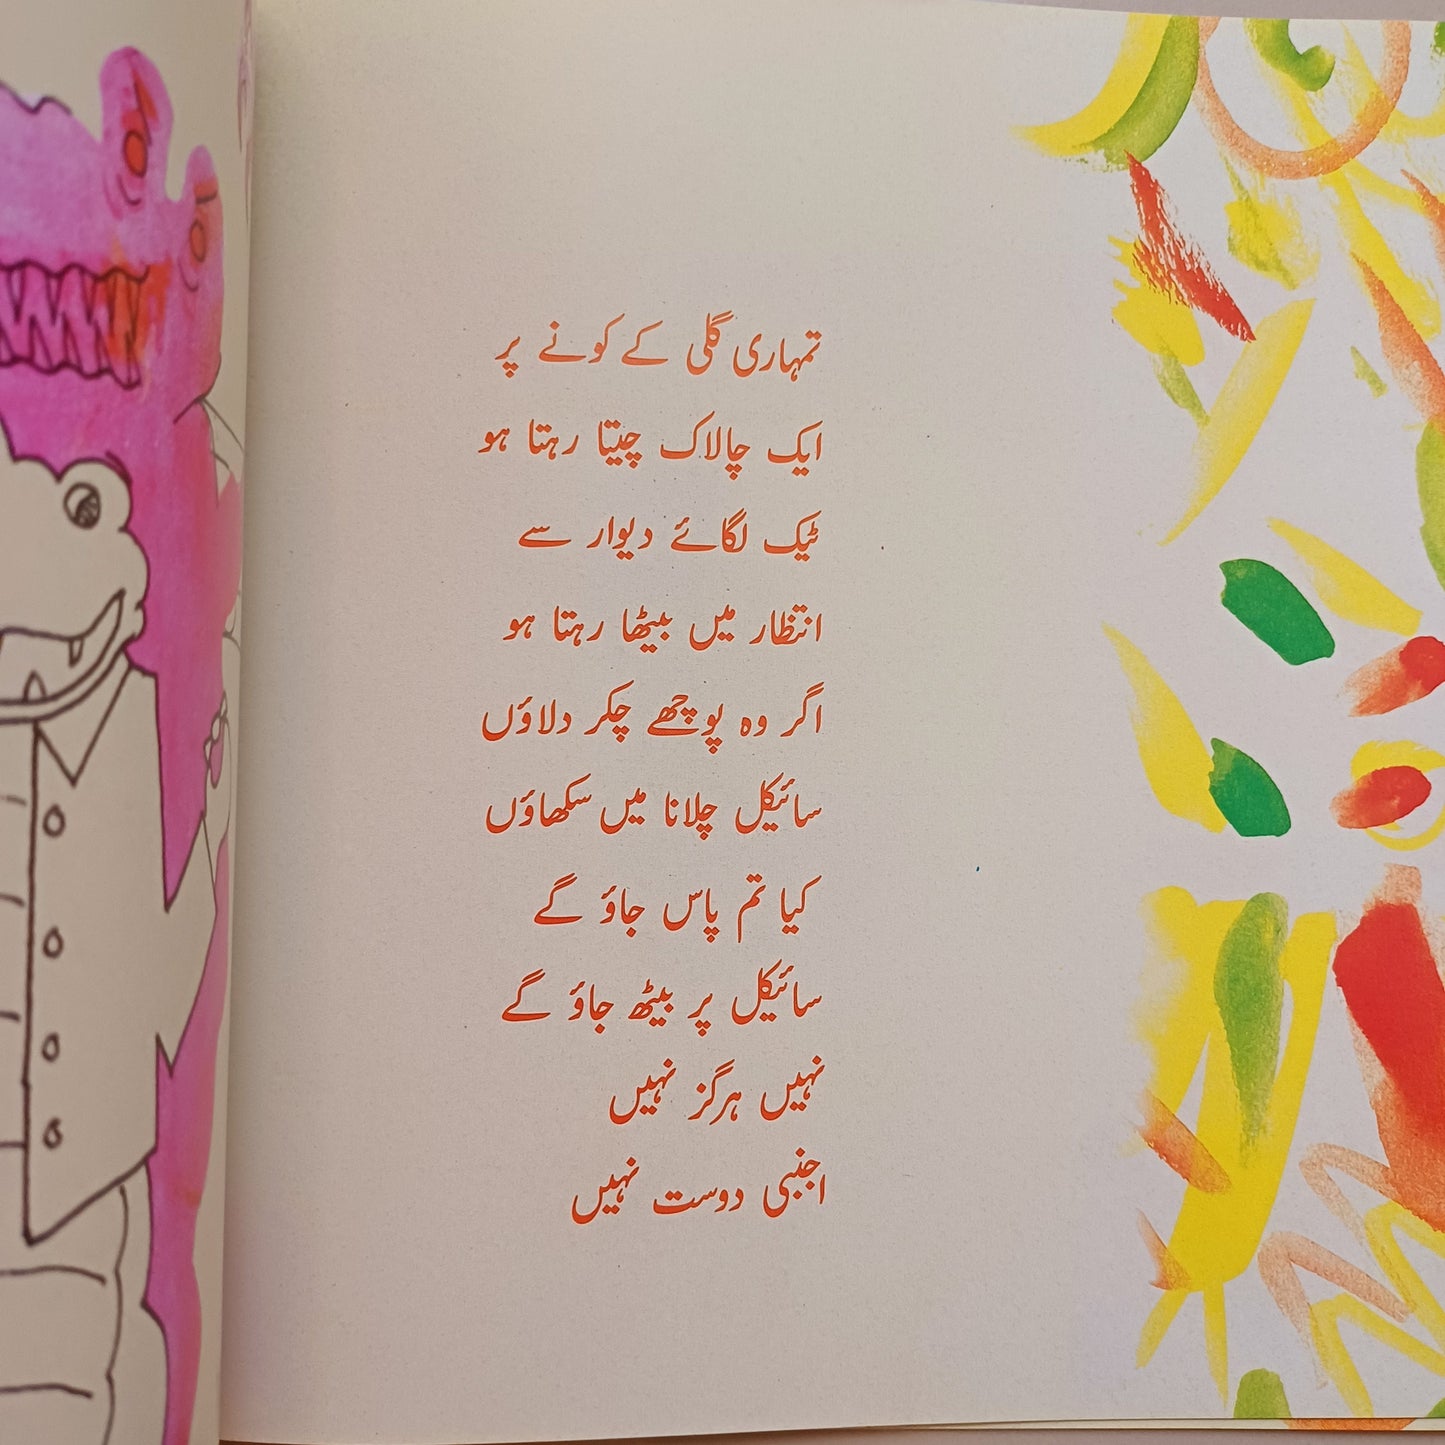 تمہاری گلی کے کونے پر
ایک چالاک چیتا رہتا ہو
ٹیک لگائے دیوار سے
انتظار میں بیٹھا رہتا ہو
اگر وہ پوچھے چکر دلاؤں
سائیکل چلانا میں سکھاؤں
کیا تم پاس جاؤ گے
سائیکل پر بیٹھ جاؤ گے
نہیں ہرگز نہیں
اجنبی دوست نہیں